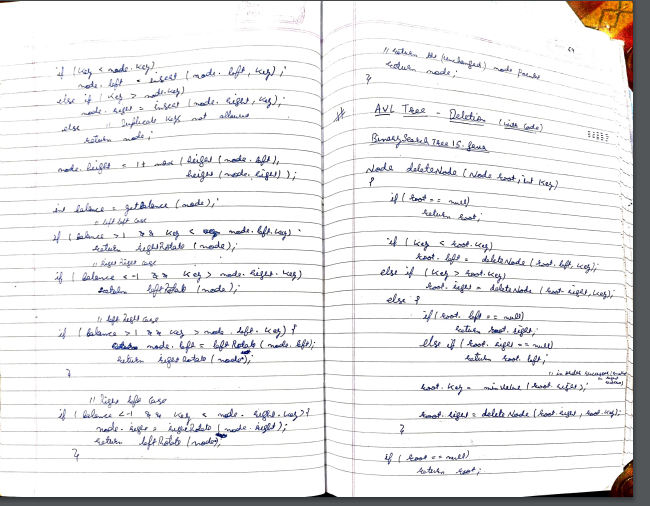 if (key < node.key)
node.left = insert (node.left, key);
else if (key > node.key)
node.right = insert (node.right, key);
else // Duplicate keys not allowed
return node;
node.height = 1 + max (height (node.left),
height (node.right));
int balance = getBalance (node);
// left left case
if (balance > 1 && key < node.left.key)
return rightRotate (node);
// Right Right case
if (balance < -1 && key > node.right.key)
return leftRotate (node);
// left Right case
if (balance > 1 && key > node.left.key) {
node.left = leftRotate (node.left);
return rightRotate (node);
}
// Right left case
if (balance < -1 && key < node.right.key) {
node.right = rightRotate (node.right);
return leftRotate (node);
}
// return the (unchanged) node pointer
return node;
}
# AVL Tree - Deletion (with code)
BinarySearchTree15.java
Node deleteNode (Node root, int key)
{
if (root == null)
return root;
if (key < root.key)
root.left = deleteNode (root.left, key);
else if (key > root.key)
root.right = deleteNode (root.right, key);
else {
if (root.left == null)
return root.right;
else if (root.right == null)
return root.left;
// in order successor (smallest in right subtree)
root.key = minValue (root.right);
root.right = deleteNode (root.right, root.key);
}
if (root == null)
return root;